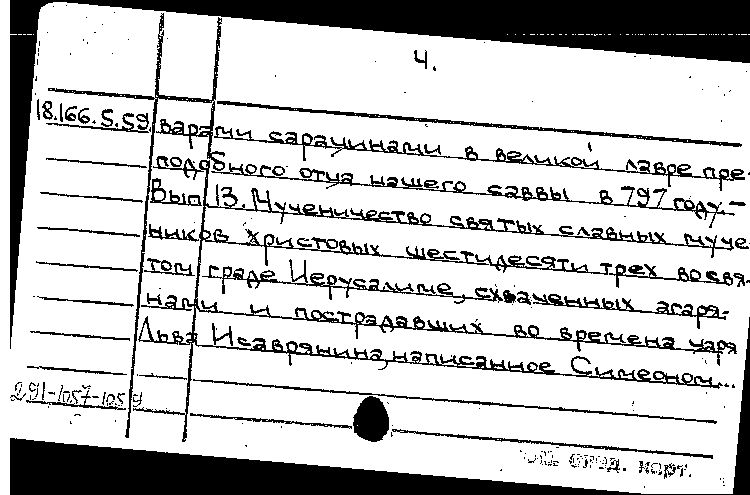 4.
18.166.5.59 варами сарацинами в великой лавре пре-
подобного отца нашего саввы в 797 году.-
Вып.13. Мученичество святых славных муче-
ников христовых шестидесяти трех во свя-
том граде Иерусалиме, схваченных агаря-
нами и пострадавших во времена царя
Льва Исаврянина, написанное Симеоном...
291-1057-1059
отд. карт.